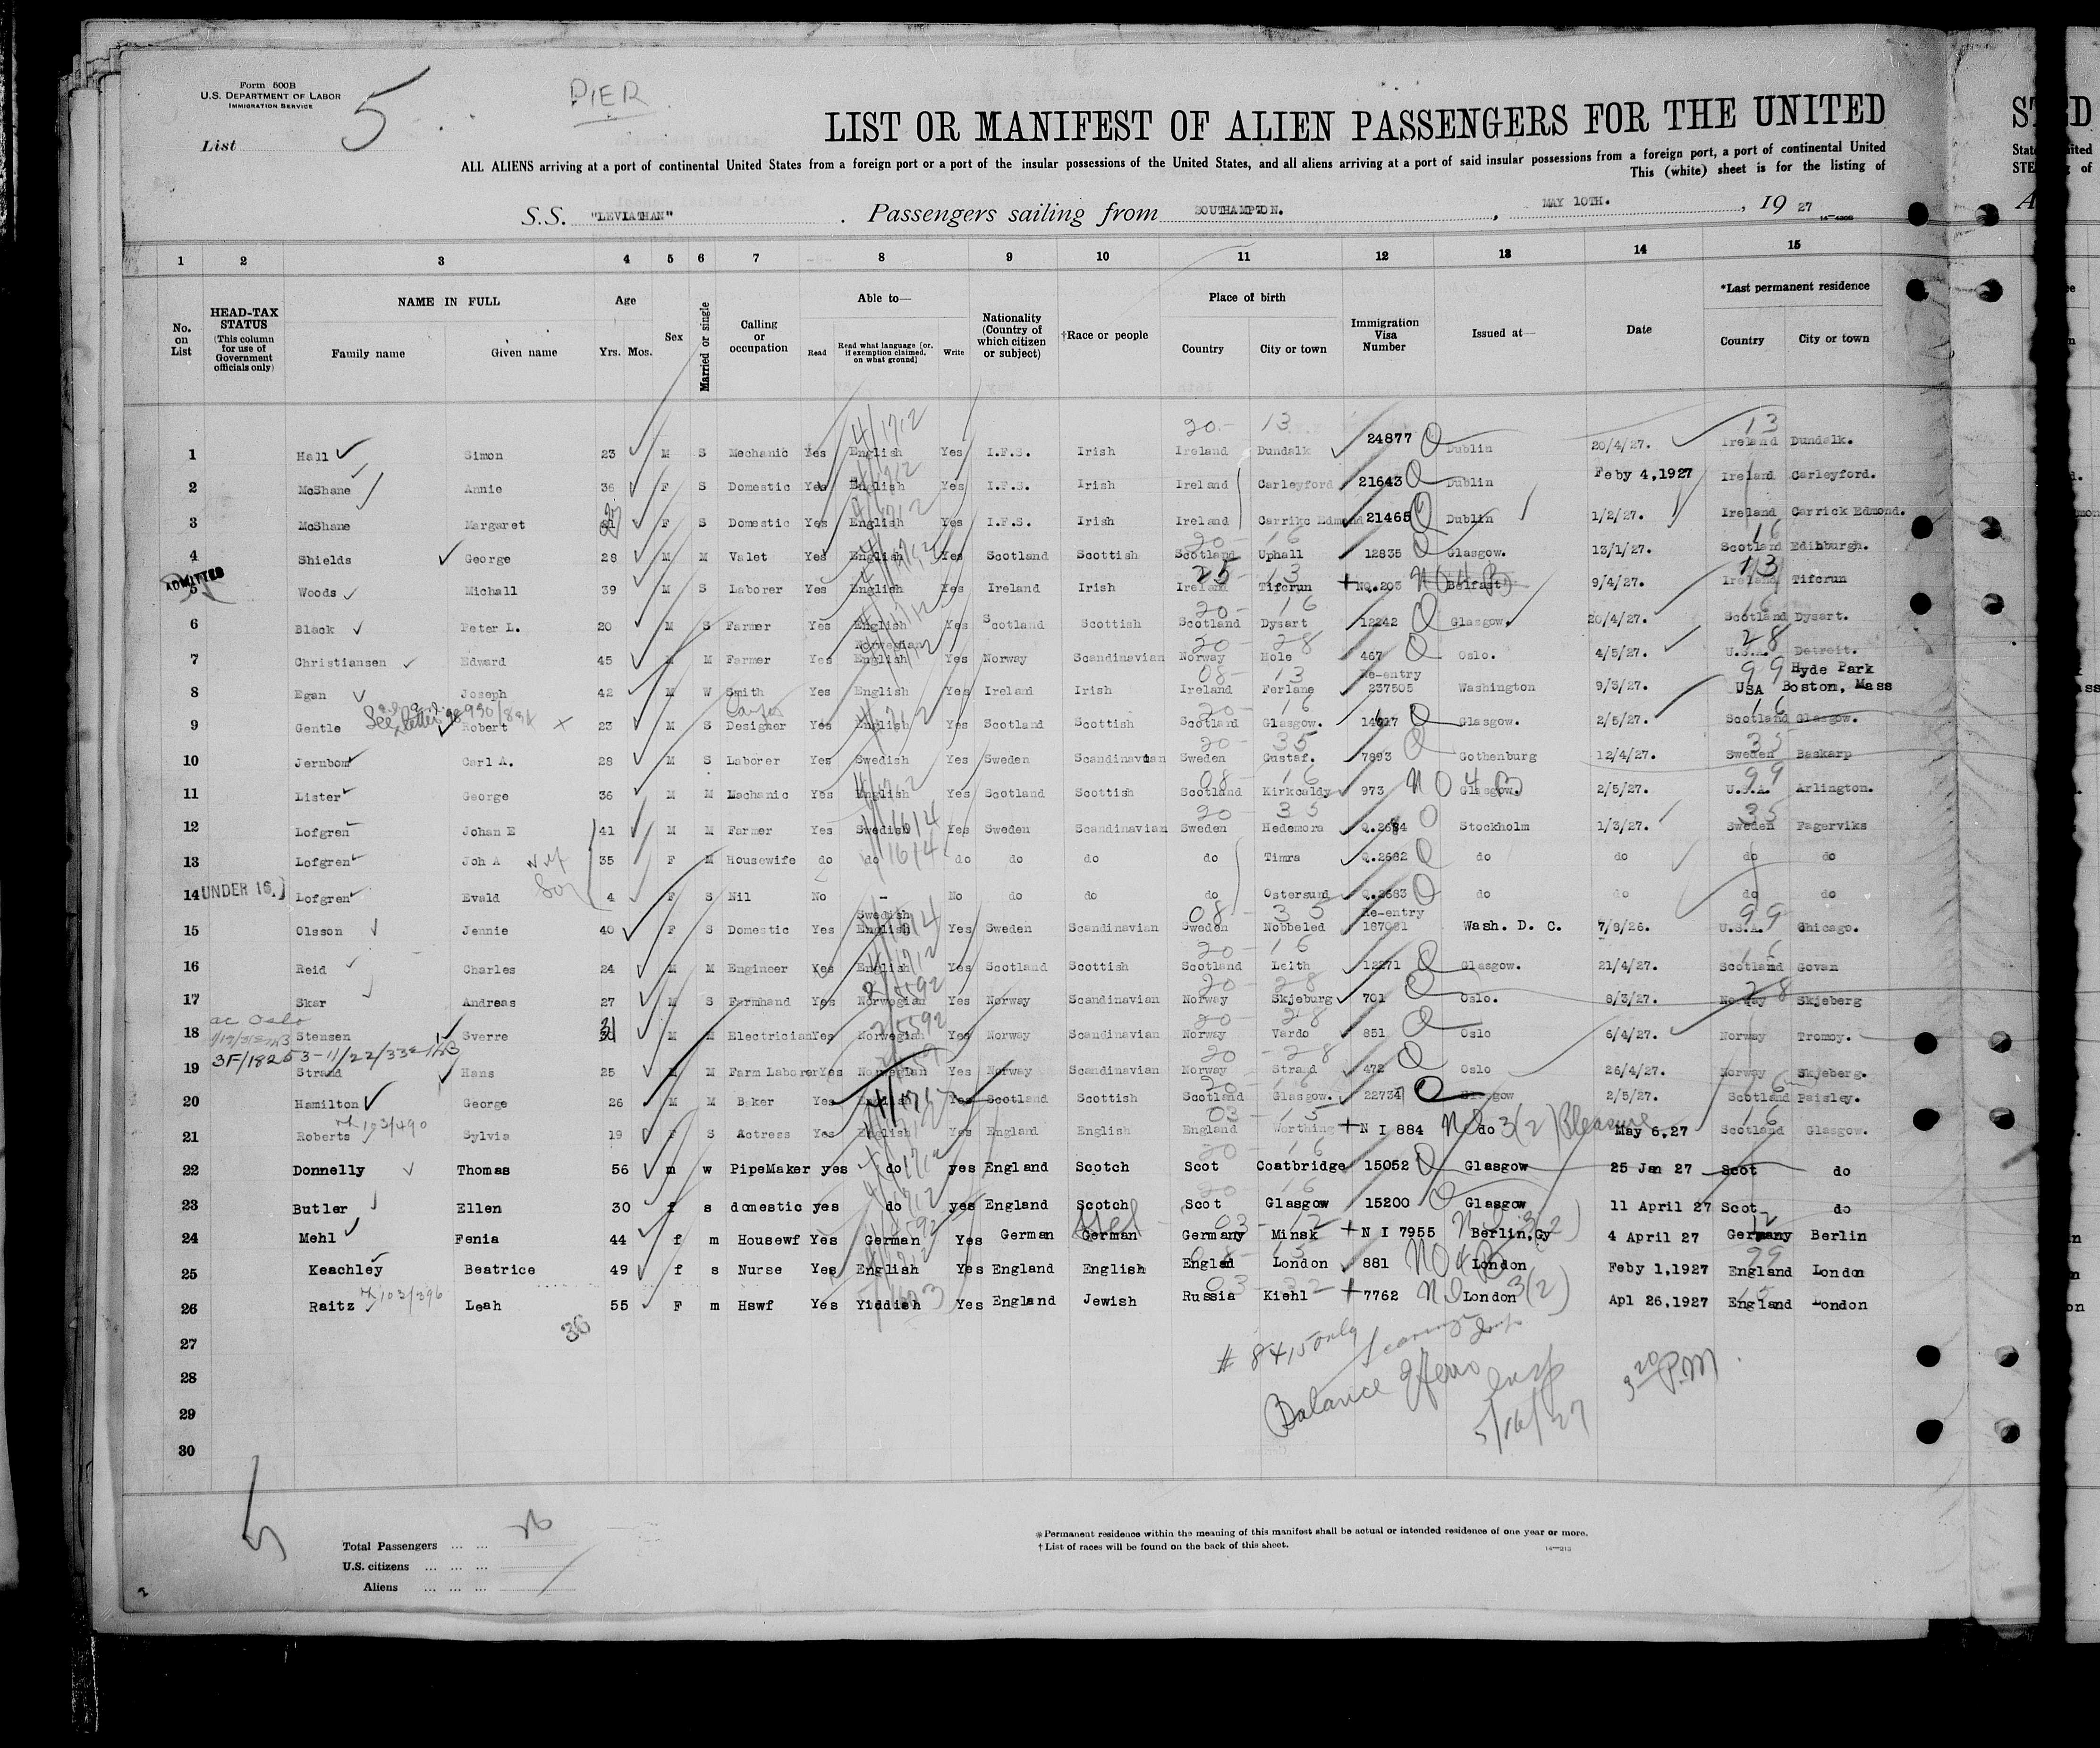 Form 500B
U.S. DEPARTMENT OF LABOR
IMMIGRATION SERVICE
List 5
PIER
LIST OR MANIFEST OF ALIEN PASSENGERS FOR THE UNITED
ALL ALIENS arriving at a port of continental United States from a foreign port or a port of the insular possessions of the United States, and all aliens arriving at a port of said insular possessions from a foreign port, a port of continental United
This (white) sheet is for the listing of
S.S. "LEVIATHAN". Passengers sailing from SOUTHAMPTON. , MAY 10TH. , 19 27
1 2 3 4 5 6 7 8 9 10 11 12 13 14 15
No. on List
HEAD-TAX STATUS (This column for use of Government officials only)
NAME IN FULL
Family name Given name
Age
Yrs. Mos.
Sex
Married or single
Calling or occupation
Able to—
Read Read what language [or, if exemption claimed, on what ground] Write
Nationality (Country of which citizen or subject)
†Race or people
Place of birth
Country City or town
Immigration Visa Number
Issued at—
Date
*Last permanent residence
Country City or town
1 Hall Simon 23 M S Mechanic Yes English Yes I.F.S. Irish Ireland Dundalk 24877 Dublin 20/4/27. Ireland Dundalk.
2 McShane Annie 36 F S Domestic Yes English Yes I.F.S. Irish Ireland Carleyford 21643 Dublin Feby 4,1927 Ireland Carleyford.
3 McShane Margaret F S Domestic Yes English Yes I.F.S. Irish Ireland Carrikc Edmond 21465 Dublin 1/2/27. Ireland Carrick Edmond.
4 Shields George 28 M M Valet Yes English Yes Scotland Scottish Scotland Uphall 12835 Glasgow. 13/1/27. Scotland Edinburgh.
ADMITTED
5 Woods Michall 39 M S Laborer Yes English Yes Ireland Irish Ireland Tifcrun NQ.203 Belfast 9/4/27. Ireland Tifcrun
6 Black Peter L. 20 M S Farmer Yes English Yes Scotland Scottish Scotland Dysart 12242 Glasgow. 20/4/27. Scotland Dysart.
7 Christiansen Edward 45 M M Farmer Yes Norwegian English Yes Norway Scandinavian Norway Hole 467 Oslo. 4/5/27. U.S.A. Detroit.
8 Egan Joseph 42 M W Smith Yes English Yes Ireland Irish Ireland Ferlane Re-entry 237505 Washington 9/3/27. USA Hyde Park Boston, Mass
See letter
9 Gentle Robert 23 M S Designer Yes English Yes Scotland Scottish Scotland Glasgow. 14617 Glasgow. 2/5/27. Scotland Glasgow.
10 Jernbom Carl A. 28 M S Laborer Yes Swedish Yes Sweden Scandinavian Sweden Gustaf. 7893 Gothenburg 12/4/27. Sweden Baskarp
11 Lister George 36 M M Mechanic Yes English Yes Scotland Scottish Scotland Kirkcaldy 973 Glasgow. 2/5/27. U.S.A. Arlington.
12 Lofgren Johan E 41 M M Farmer Yes Swedish Yes Sweden Scandinavian Sweden Hedemora Q.2684 Stockholm 1/3/27. Sweden Fagerviks
13 Lofgren Joh A wif 35 F M Housewife do do do do do do Timra Q.2682 do do do do
UNDER 16.
14 Lofgren Evald Son 4 F S Nil No - No do do do Ostersund Q.2683 do do do do
15 Olsson Jennie 40 F S Domestic Yes Swedish English Yes Sweden Scandinavian Sweden Nobbeled Re-entry 187081 Wash. D. C. 7/8/26. U.S.A. Chicago.
16 Reid Charles 24 M M Engineer Yes English Yes Scotland Scottish Scotland Leith 12271 Glasgow. 21/4/27. Scotland Govan
17 Skar Andreas 27 M S Farmhand Yes Norwegian Yes Norway Scandinavian Norway Skjeburg 701 Oslo. 8/3/27. Norway Skjeberg
ac Oslo
18 Stensen Sverre M M Electrician Yes Norwegian Yes Norway Scandinavian Norway Vardo 851 Oslo 6/4/27. Norway Tromoy.
19 Strand Hans 25 M M Farm Laborer Yes Norwegian Yes Norway Scandinavian Norway Strand 472 Oslo 26/4/27. Norway Skjeberg.
20 Hamilton George 26 M M Baker Yes English Yes Scotland Scottish Scotland Glasgow. 22734 Glasgow 2/5/27. Scotland Paisley.
21 Roberts Sylvia 19 F S Actress Yes English Yes England English England Worthing N I 884 do 3(2) Pleasure May 6,27 Scotland Glasgow.
22 Donnelly Thomas 56 m w PipeMaker yes do yes England Scotch Scot Coatbridge 15052 Glasgow 25 Jan 27 Scot do
23 Butler Ellen 30 f s domestic yes do yes England Scotch Scot Glasgow 15200 Glasgow 11 April 27 Scot do
24 Mehl Fenia 44 f m Housewf Yes German Yes German German Germany Minsk N I 7955 Berlin,Gy 4 April 27 Germany Berlin
25 Keachley Beatrice 49 f s Nurse Yes English Yes England English Englad London 881 London Feby 1,1927 England London
26 Raitz Leah 55 F m Hswf Yes Yiddish Yes England Jewish Russia Kiehl 7762 London 3(2) Apl 26,1927 England London
27
28
29
30
36
# 8415 only
Balance
5/16/27
3 20 P.M.
Total Passengers
U.S. citizens
Aliens
*Permanent residence within the meaning of this manifest shall be actual or intended residence of one year or more.
†List of races will be found on the back of this sheet.